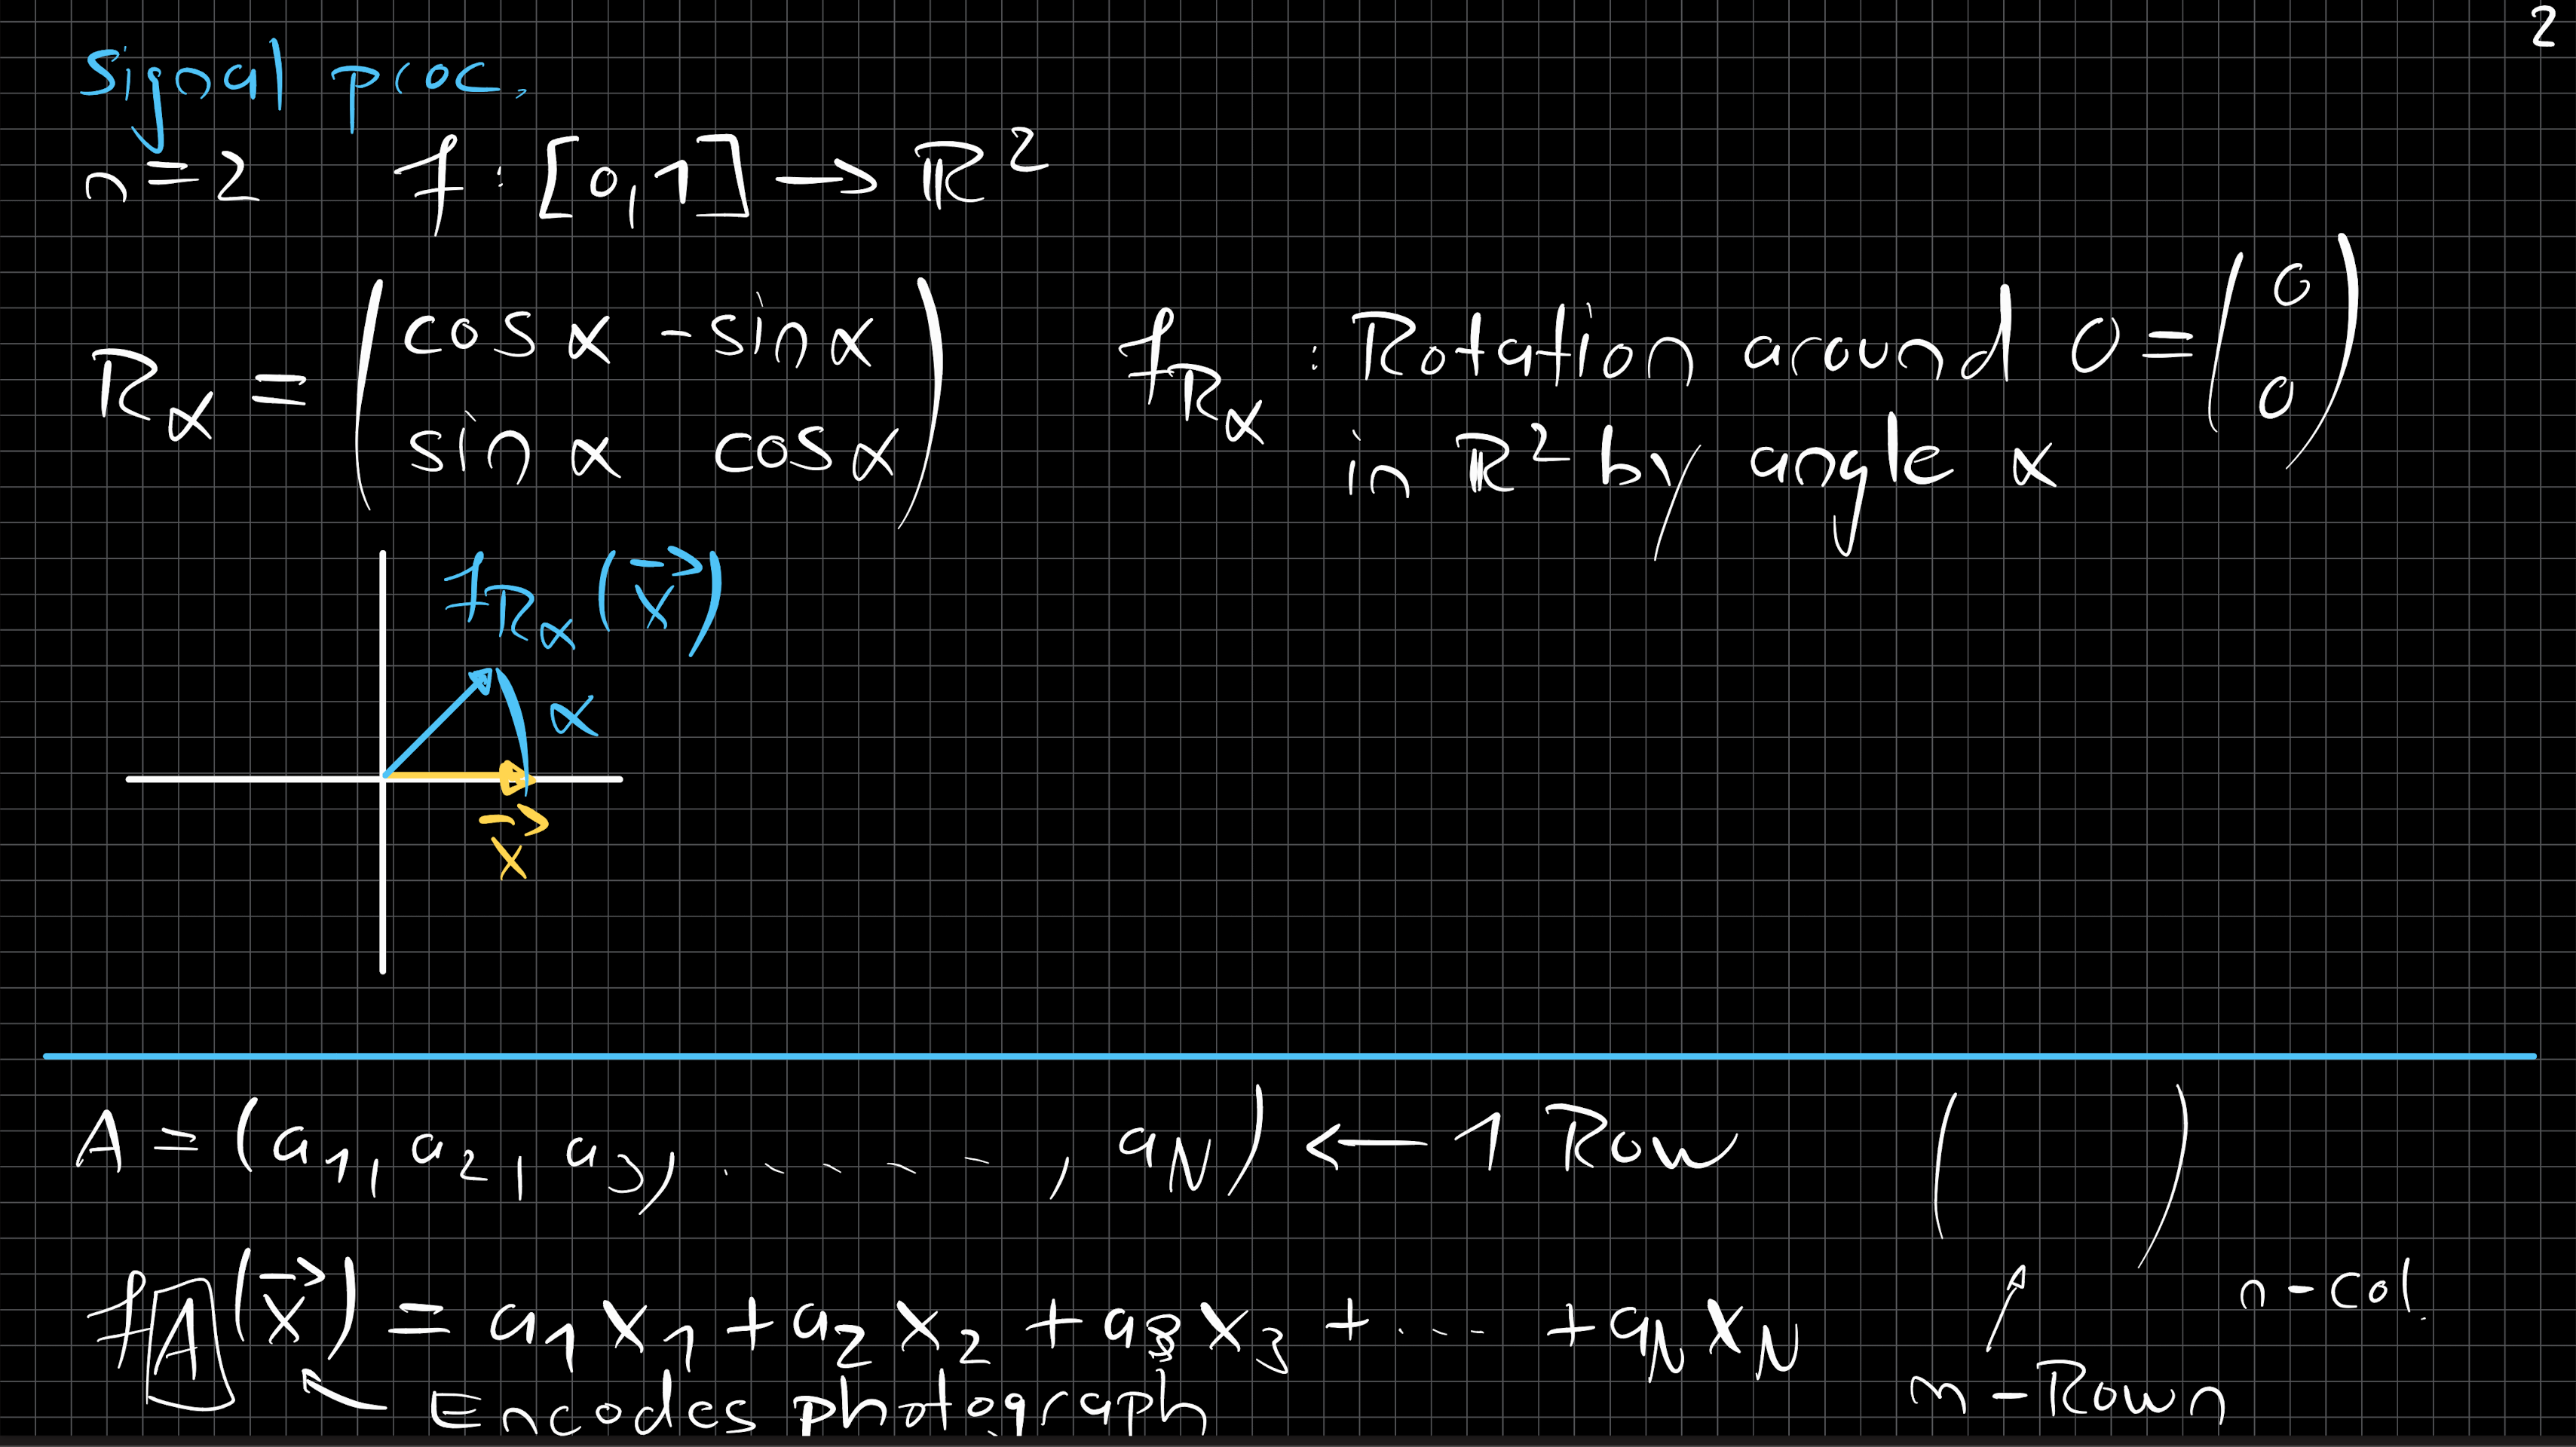 2
Signal proc.
n=2 f: [0,1] → ℝ²
R_α = ( cos α -sin α
sin α cos α )
f_{R_α} : Rotation around 0 = ( 0
0 )
in ℝ² by angle α
f_{R_α}(x⃗)
α
x⃗
A = (a₁, a₂, a₃, . . . . . , a_N) ← 1 Row ( )
f_A(x⃗) = a₁x₁ + a₂x₂ + a₃x₃ + ... + a_N x_N
n-col.
m-Rown
Encodes photograph